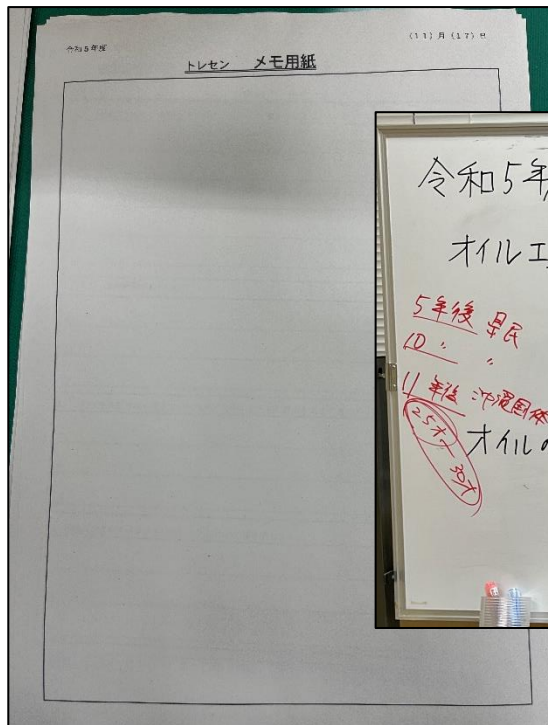 令和5年度
(11)月(17)日
トレセン メモ用紙
令和5年
オイルエ
5年後 県民
10 〃 〃
11年後 沖縄国体
25才~30才
オイルの